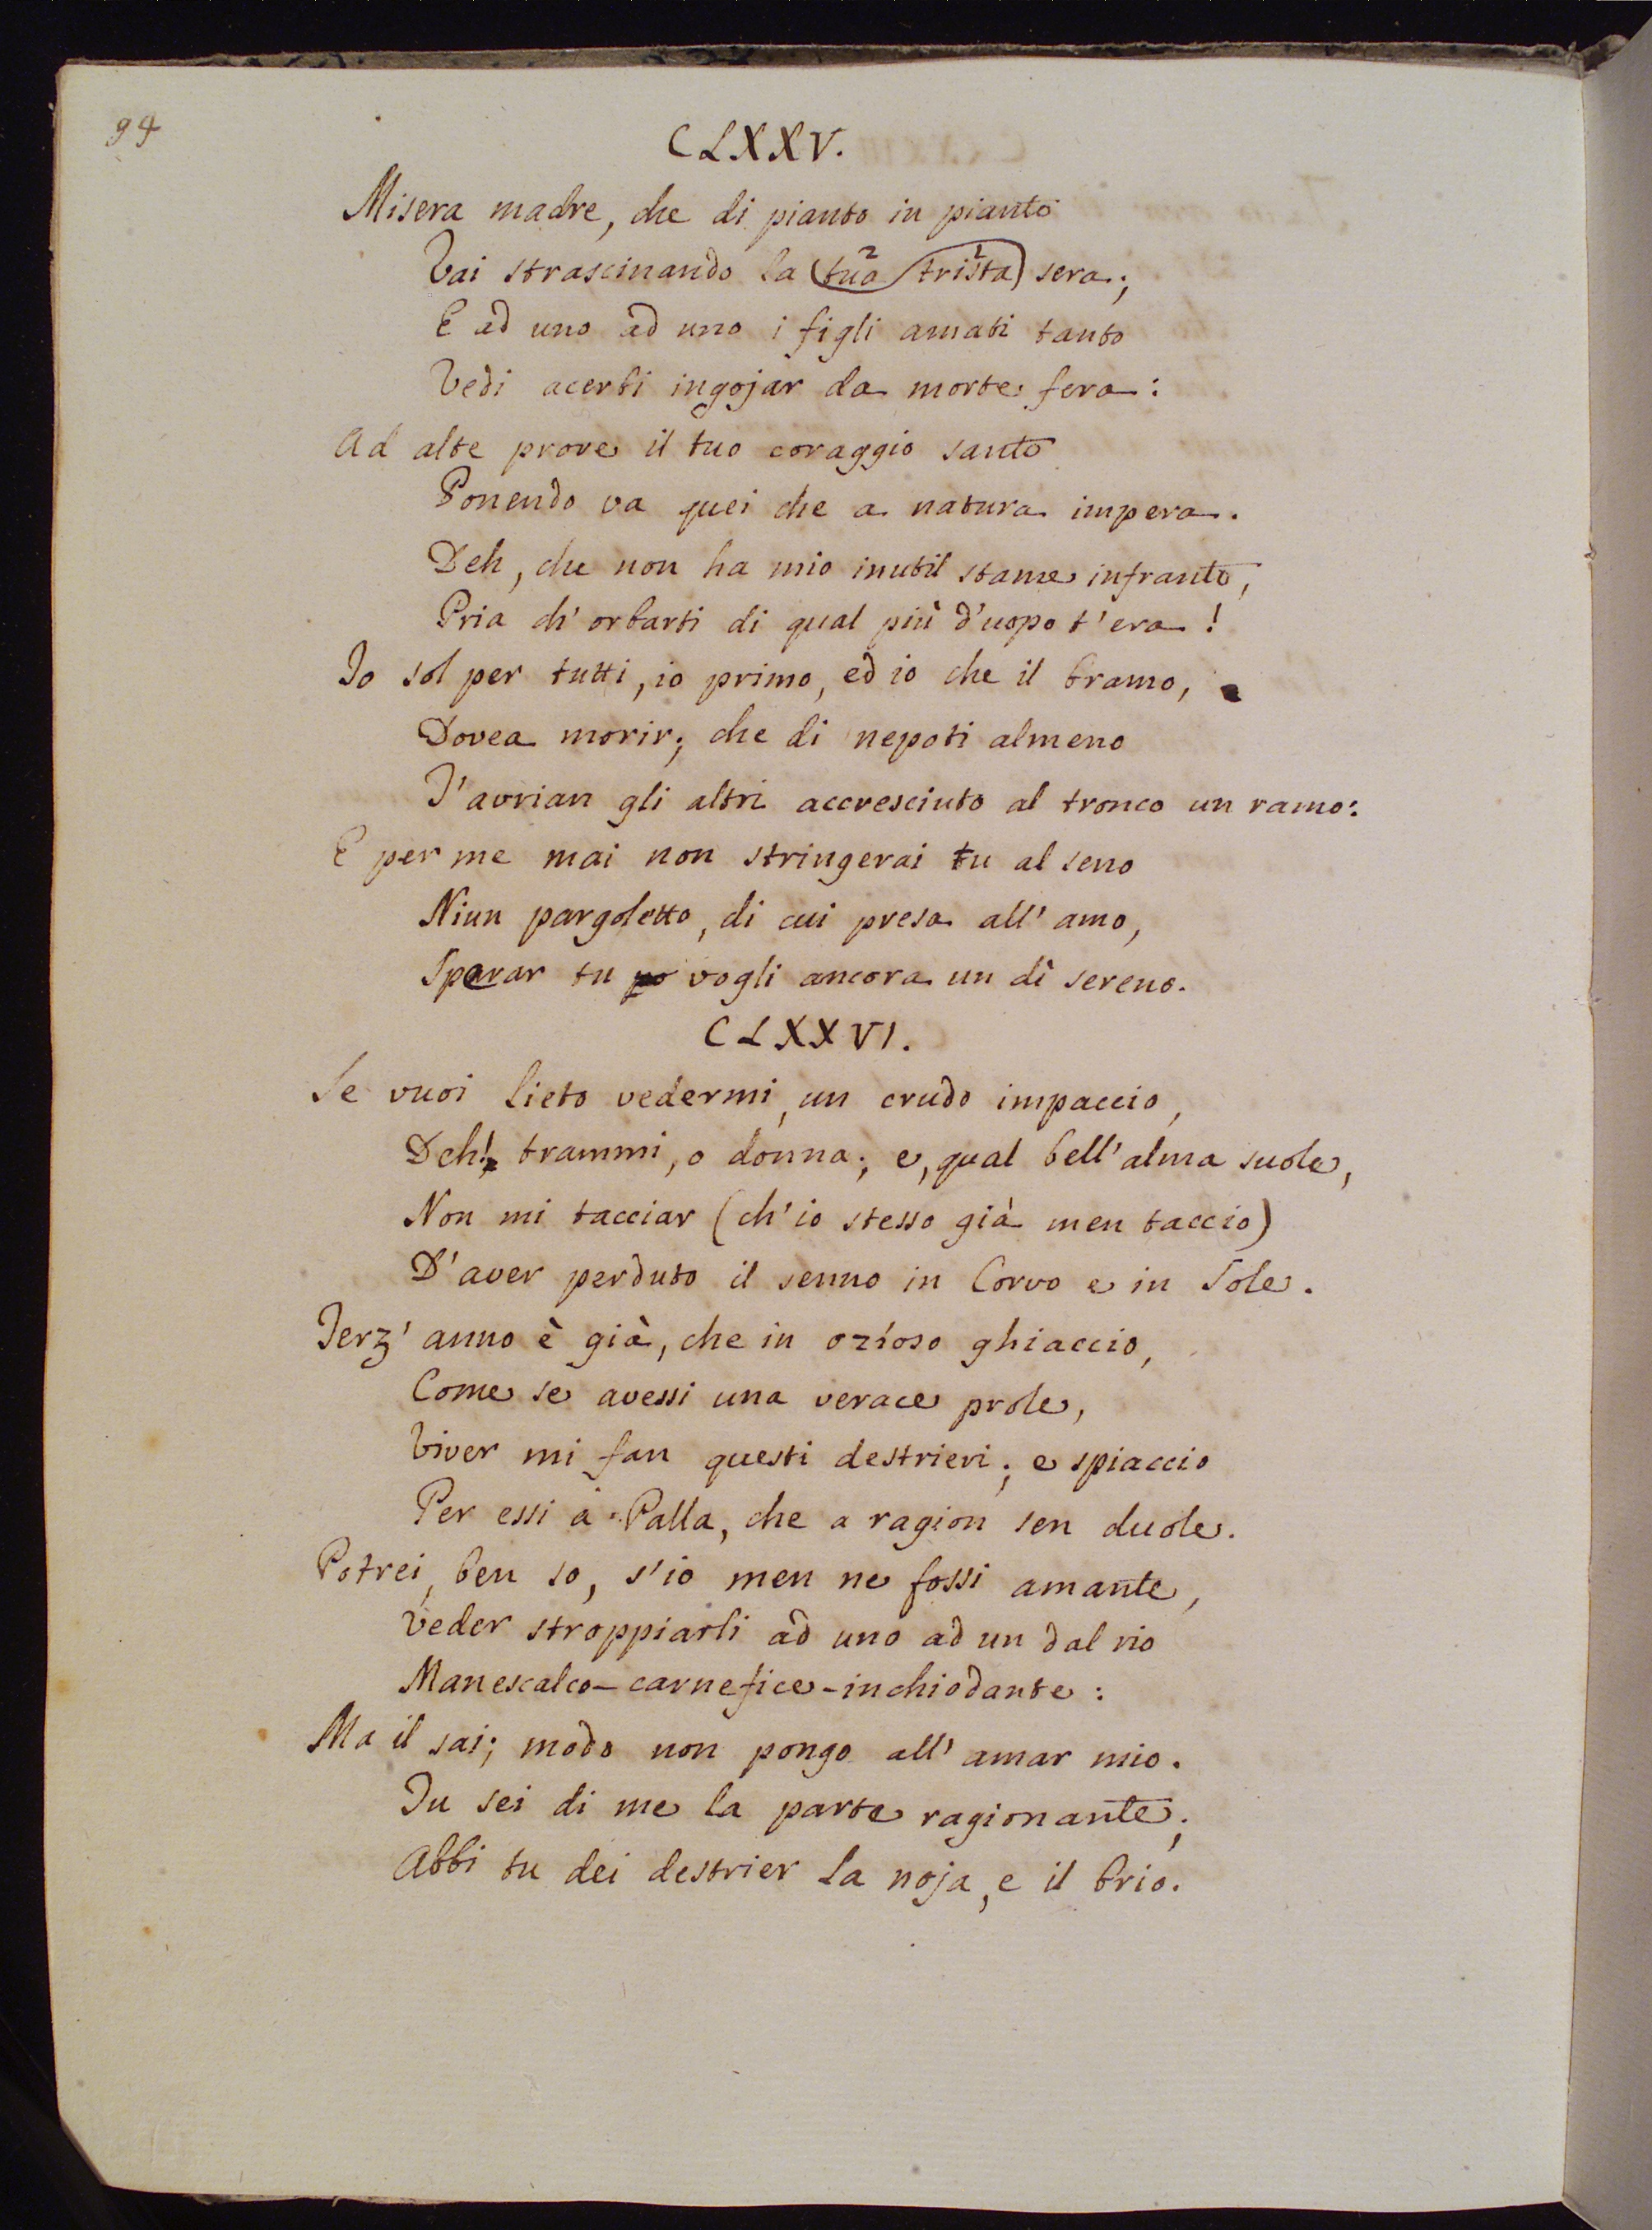 94
CLXXV.
Misera madre, che di pianto in pianto
Vai strascinando la tua trista sera;
E ad uno ad uno i figli amati tanto
Vedi acerbi ingojar da morte fera:
Ad alte prove il tuo coraggio santo
Ponendo va quei che a natura impera.
Deh, che non ha mio inutil stame infranto,
Pria ch'orbarti di qual più d'uopo t'era!
Io sol per tutti, io primo, ed io che il bramo,
Dovea morir; che di nepoti almeno
T'avrian gli altri accresciuto al tronco un ramo:
E per me mai non stringerai tu al seno
Niun pargoletto, di cui presa all'amo,
Sperar tu vogli ancora un dì sereno.
CLXXVI.
Se vuoi lieto vedermi, un crudo impaccio,
Deh! trammi, o donna; e, qual bell'alma suole,
Non mi tacciar (ch'io stesso già men taccio)
D'aver perduto il senno in Corvo e in Sole.
Terz'anno è già, che in ozioso ghiaccio,
Come se avessi una verace prole,
Viver mi fan questi destrieri; e spiaccio
Per essi a Palla, che a ragion sen duole.
Potrei, ben so, s'io men ne fossi amante,
Veder stroppiarli ad uno ad un dal rio
Manescalco-carnefice-inchiodante:
Ma il sai; modo non pongo all'amar mio.
Tu sei di me la parte ragionante;
Abbi tu dei destrier la noja, e il brio.